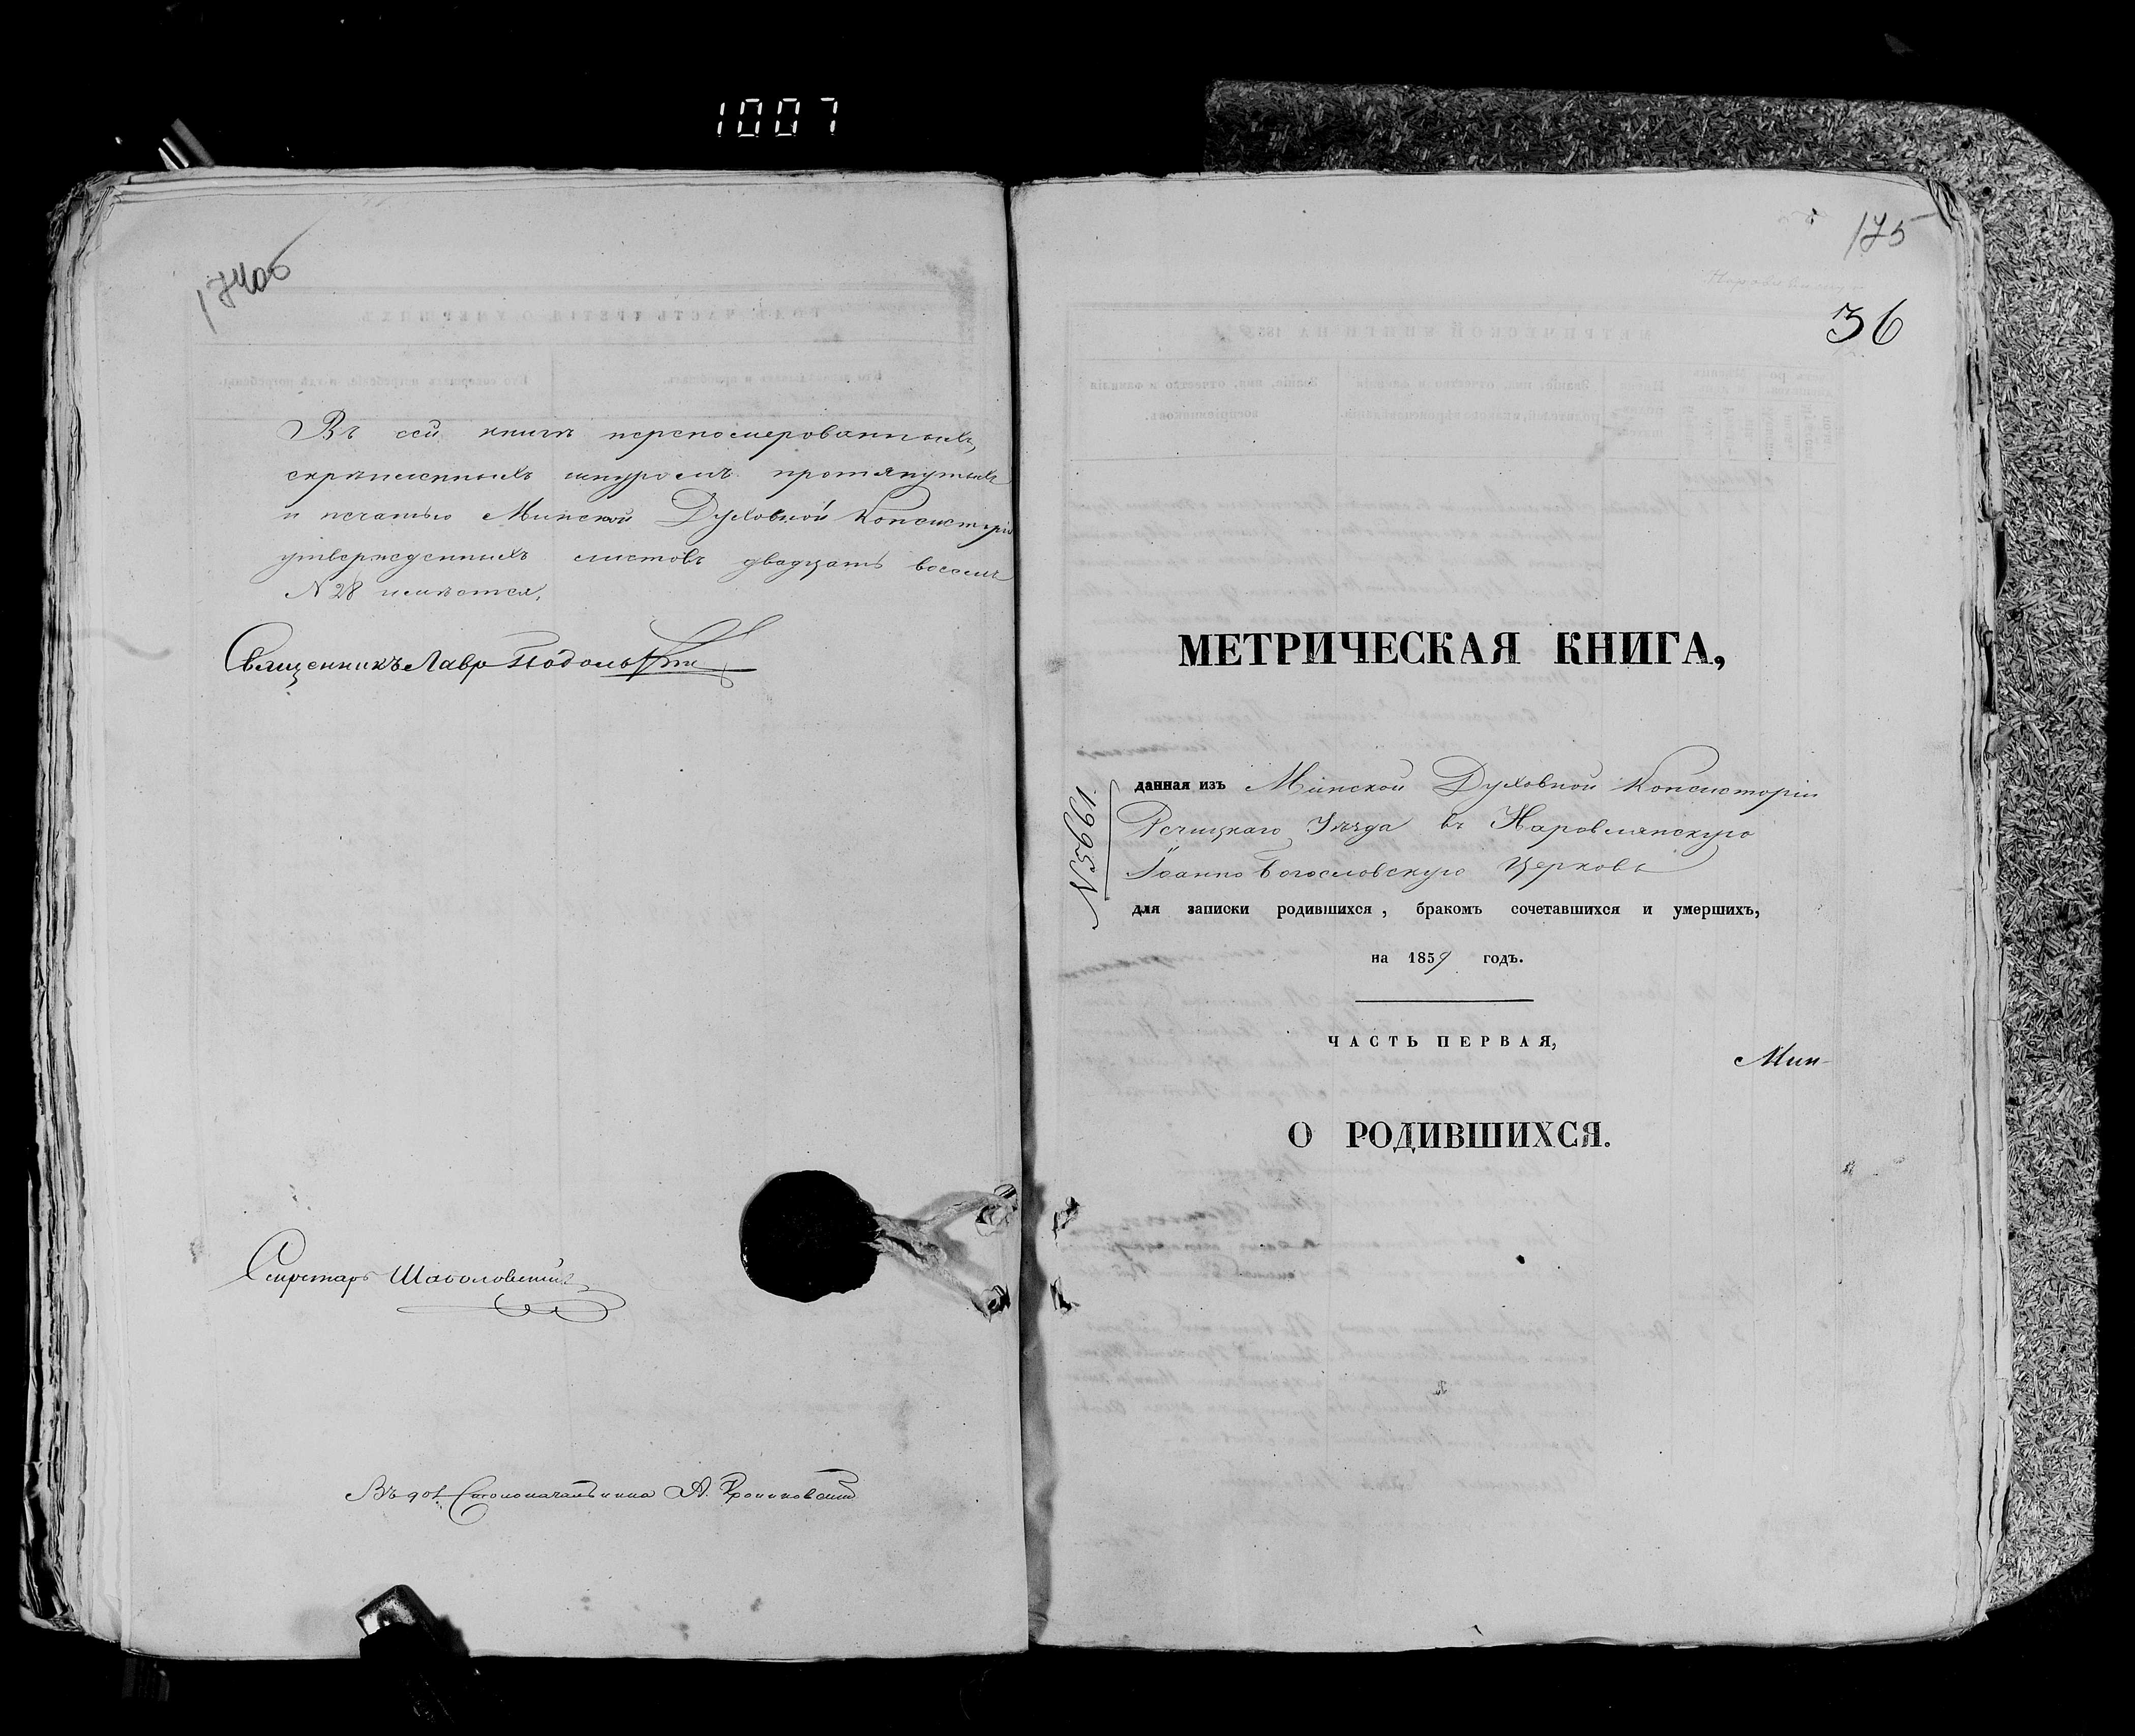 1007
174об
Въ сей книгѣ перономерованныхъ,
скрѣпленныхъ шнуромъ протянутыхъ
и печатью Минской Духовной Консисторіи
утвержденныхъ листовъ двадцать восемь
N 28 имѣется.
Священникъ Лавр Подольскій
Секретарь
Въ дол. Столоначальника А.
175
36
МЕТРИЧЕСКАЯ КНИГА,
N 5661.
данная изъ Минской Духовной Консисторіи
Речицкаго Уѣзда въ Наровлянскую
Іоанно Богословскую Церковь
для записки родившихся, бракомъ сочетавшихся и умершихъ,
на 1859 годъ.
ЧАСТЬ ПЕРВАЯ,
Мин-
О РОДИВШИХСЯ.